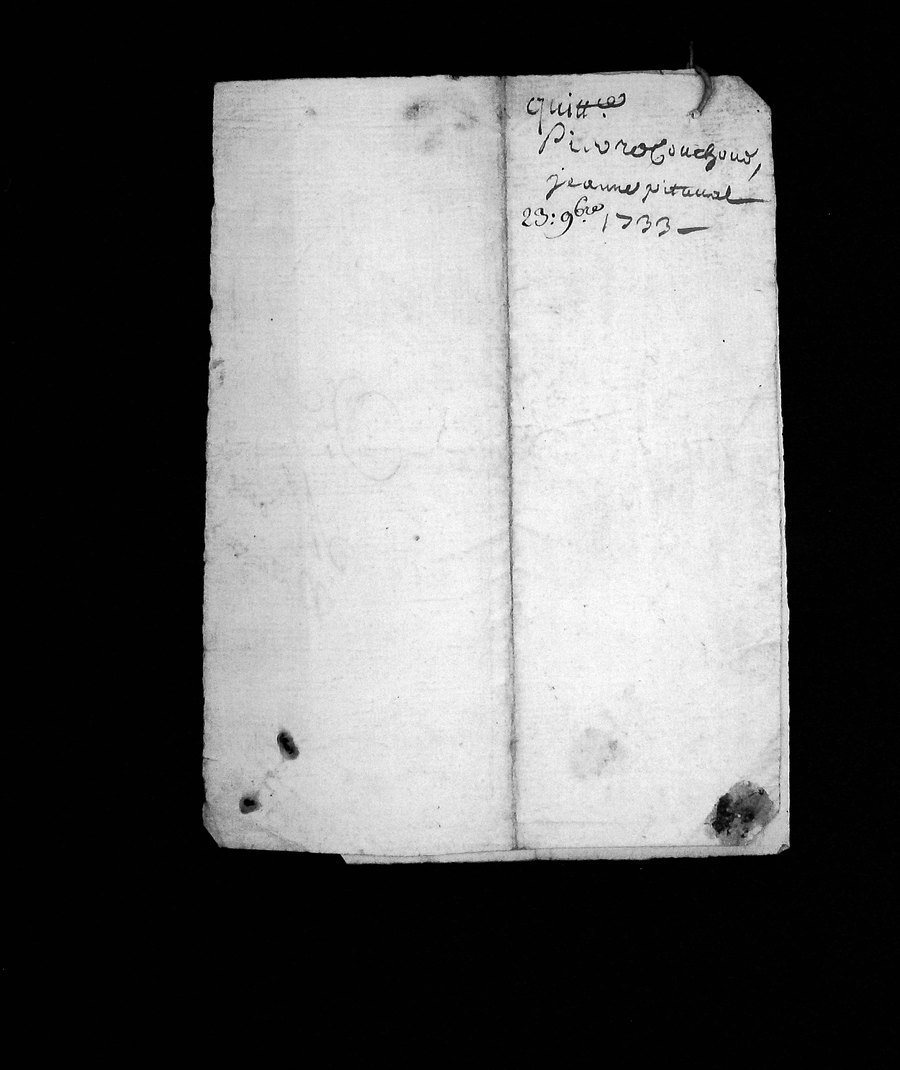 quitt.ce
Pierre Couchoud,
jeanne pitaval
23: 9bre 1733